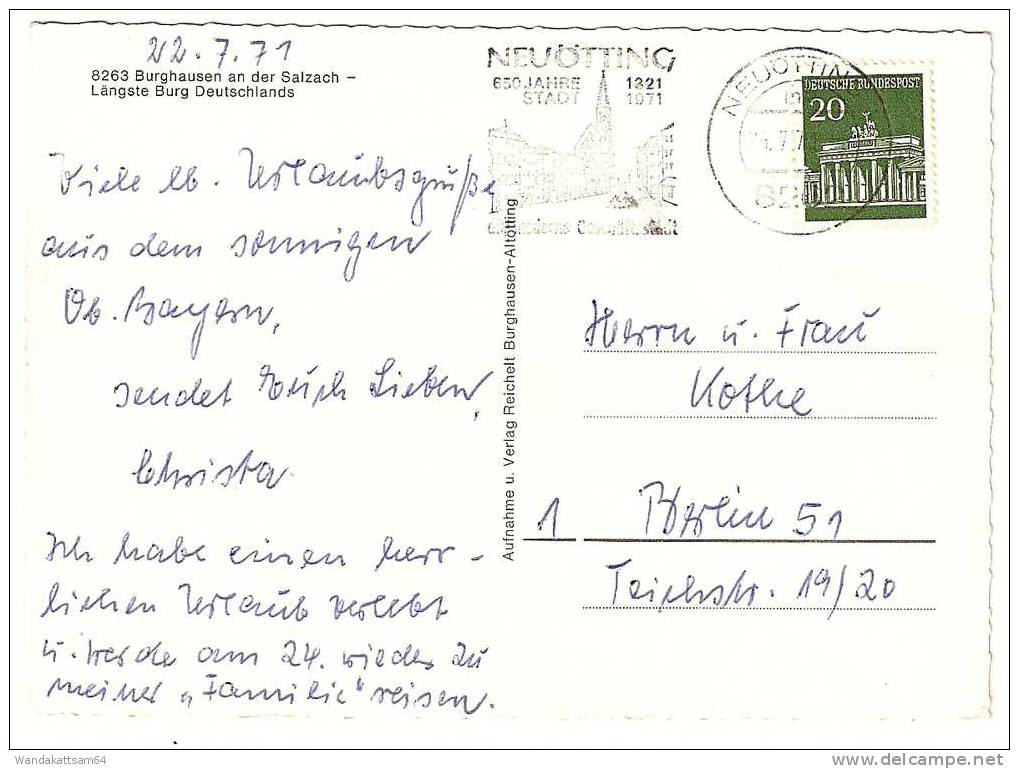 22.7.71
8263 Burghausen an der Salzach –
Längste Burg Deutschlands
NEUÖTTING
650 JAHRE 1321
STADT 1971
Geschäftsstadt
NEUÖTTING
DEUTSCHE BUNDESPOST
20
Viele lb. Urlaubsgrüße
aus dem sonnigen
Ob. Bayern,
sendet Euch Lieben,
Christa
Ich habe einen herr-
lichen Urlaub verlebt
u. werde am 24. wieder zu
meiner „Familie" reisen.
Aufnahme u. Verlag Reichelt Burghausen-Altötting
Herrn u. Frau
Kothe
1 Berlin 51
Teichstr. 19/20
Wandakattsam64
delcampe.net